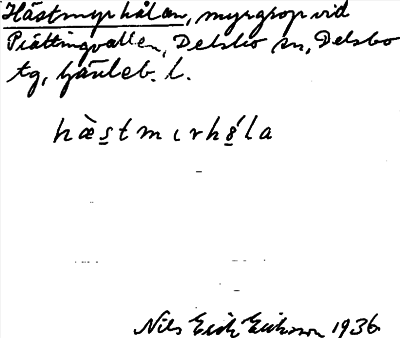 Hästmyrhålan, myrgrop vid
Prättingvallen, Delsbo sn, Delsbo
tg, Gävleb. l.
hæ̀stmırhǻla
Nils Erik Eriksson 1936